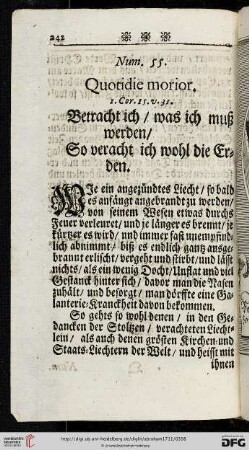 242
Num. 55.
Quotidie morior.
1. Cor. 15. v. 31.
Betracht ich / was ich muß
werden /
So veracht ich wohl die Er-
den.
WIe ein angezündtes Liecht / so bald
es anfängt angebrandt zu werden /
von seinem Wesen etwas durchs
Feuer verleuret / und je länger es brennt / je
kürtzer es wird / und immer fast unempfind-
lich abnimmt / biß es endlich gantz ausge-
brannt erlischt / vergeht und stirbt / und lässt
nichts / als ein wenig Docht / Unflat und viel
Gestanck hinter sich / davor man die Nasen
zuhält / und besorgt / man dörffte eine Ga-
lanterie-Kranckheit davon bekommen.
So gehts so wohl denen / in den Ge-
dancken der Stoltzen / verachteten Liecht-
lein / als auch denen grösten Kirchen-und
Staats-Liechtern der Welt / und heisst mit
ihnen
http://digi.ub.uni-heidelberg.de/diglit/abraham1711/0358
© Universitätsbibliothek Heidelberg
gefördert durch die
DFG